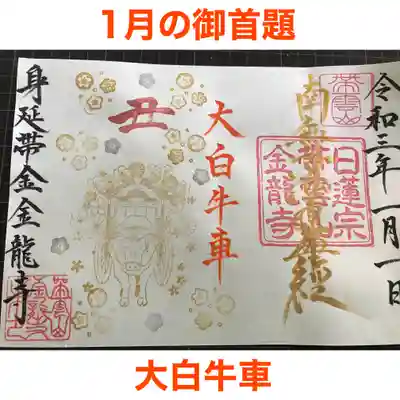 1月の御首題
令和三年一月一日
帯雲山
日蓮宗
金龍寺
南無妙法蓮華經
大白牛車
丑
身延帯金金龍寺
大白牛車